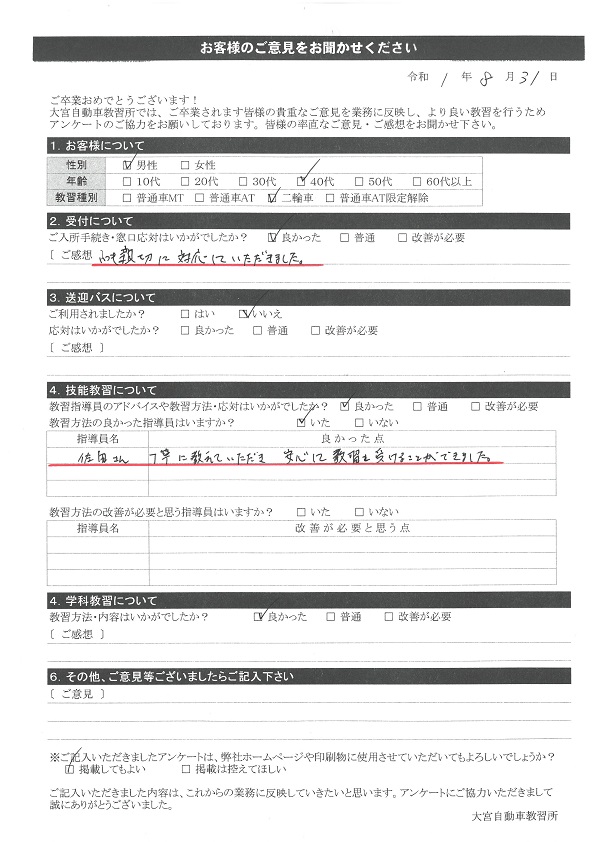 お客様のご意見をお聞かせください
令和 1 年 8 月 31 日
ご卒業おめでとうございます！
大宮自動車教習所では、ご卒業されます皆様の貴重なご意見を業務に反映し、より良い教習を行うため
アンケートのご協力をお願いしております。皆様の率直なご意見・ご感想をお聞かせ下さい。
1. お客様について
性別 ☑男性 □女性
年齢 □10代 □20代 □30代 ☑40代 □50代 □60代以上
教習種別 □普通車MT □普通車AT ☑二輪車 □普通車AT限定解除
2. 受付について
ご入所手続き・窓口応対はいかがでしたか？ ☑良かった □普通 □改善が必要
[ ご感想 ] 親切に対応していただきました。
3. 送迎バスについて
ご利用されましたか？ □はい ☑いいえ
応対はいかがでしたか？ □良かった □普通 □改善が必要
[ ご感想 ]
4. 技能教習について
教習指導員のアドバイスや教習方法・応対はいかがでしたか？ ☑良かった □普通 □改善が必要
教習方法の良かった指導員はいますか？ ☑いた □いない
指導員名 良かった点
佐田さん 丁寧に教えていただき 安心して教習を受けることができました。
教習方法の改善が必要と思う指導員はいますか？ □いた □いない
指導員名 改善が必要と思う点
4. 学科教習について
教習方法・内容はいかがでしたか？ ☑良かった □普通 □改善が必要
[ ご感想 ]
6. その他、ご意見等ございましたらご記入下さい
[ ご意見 ]
※ご記入いただきましたアンケートは、弊社ホームページや印刷物に使用させていただいてもよろしいでしょうか？
☑掲載してもよい □掲載は控えてほしい
ご記入いただきました内容は、これからの業務に反映していきたいと思います。アンケートにご協力いただきまして
誠にありがとうございました。
大宮自動車教習所